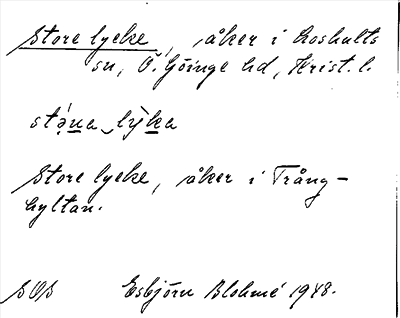 Store lycke, åker i Loshults
sn, Ö. Göinge hd, Krist. l.
Store lycke, åker i Trång-
hyltan.
Esbjörn Blohmé 1948.